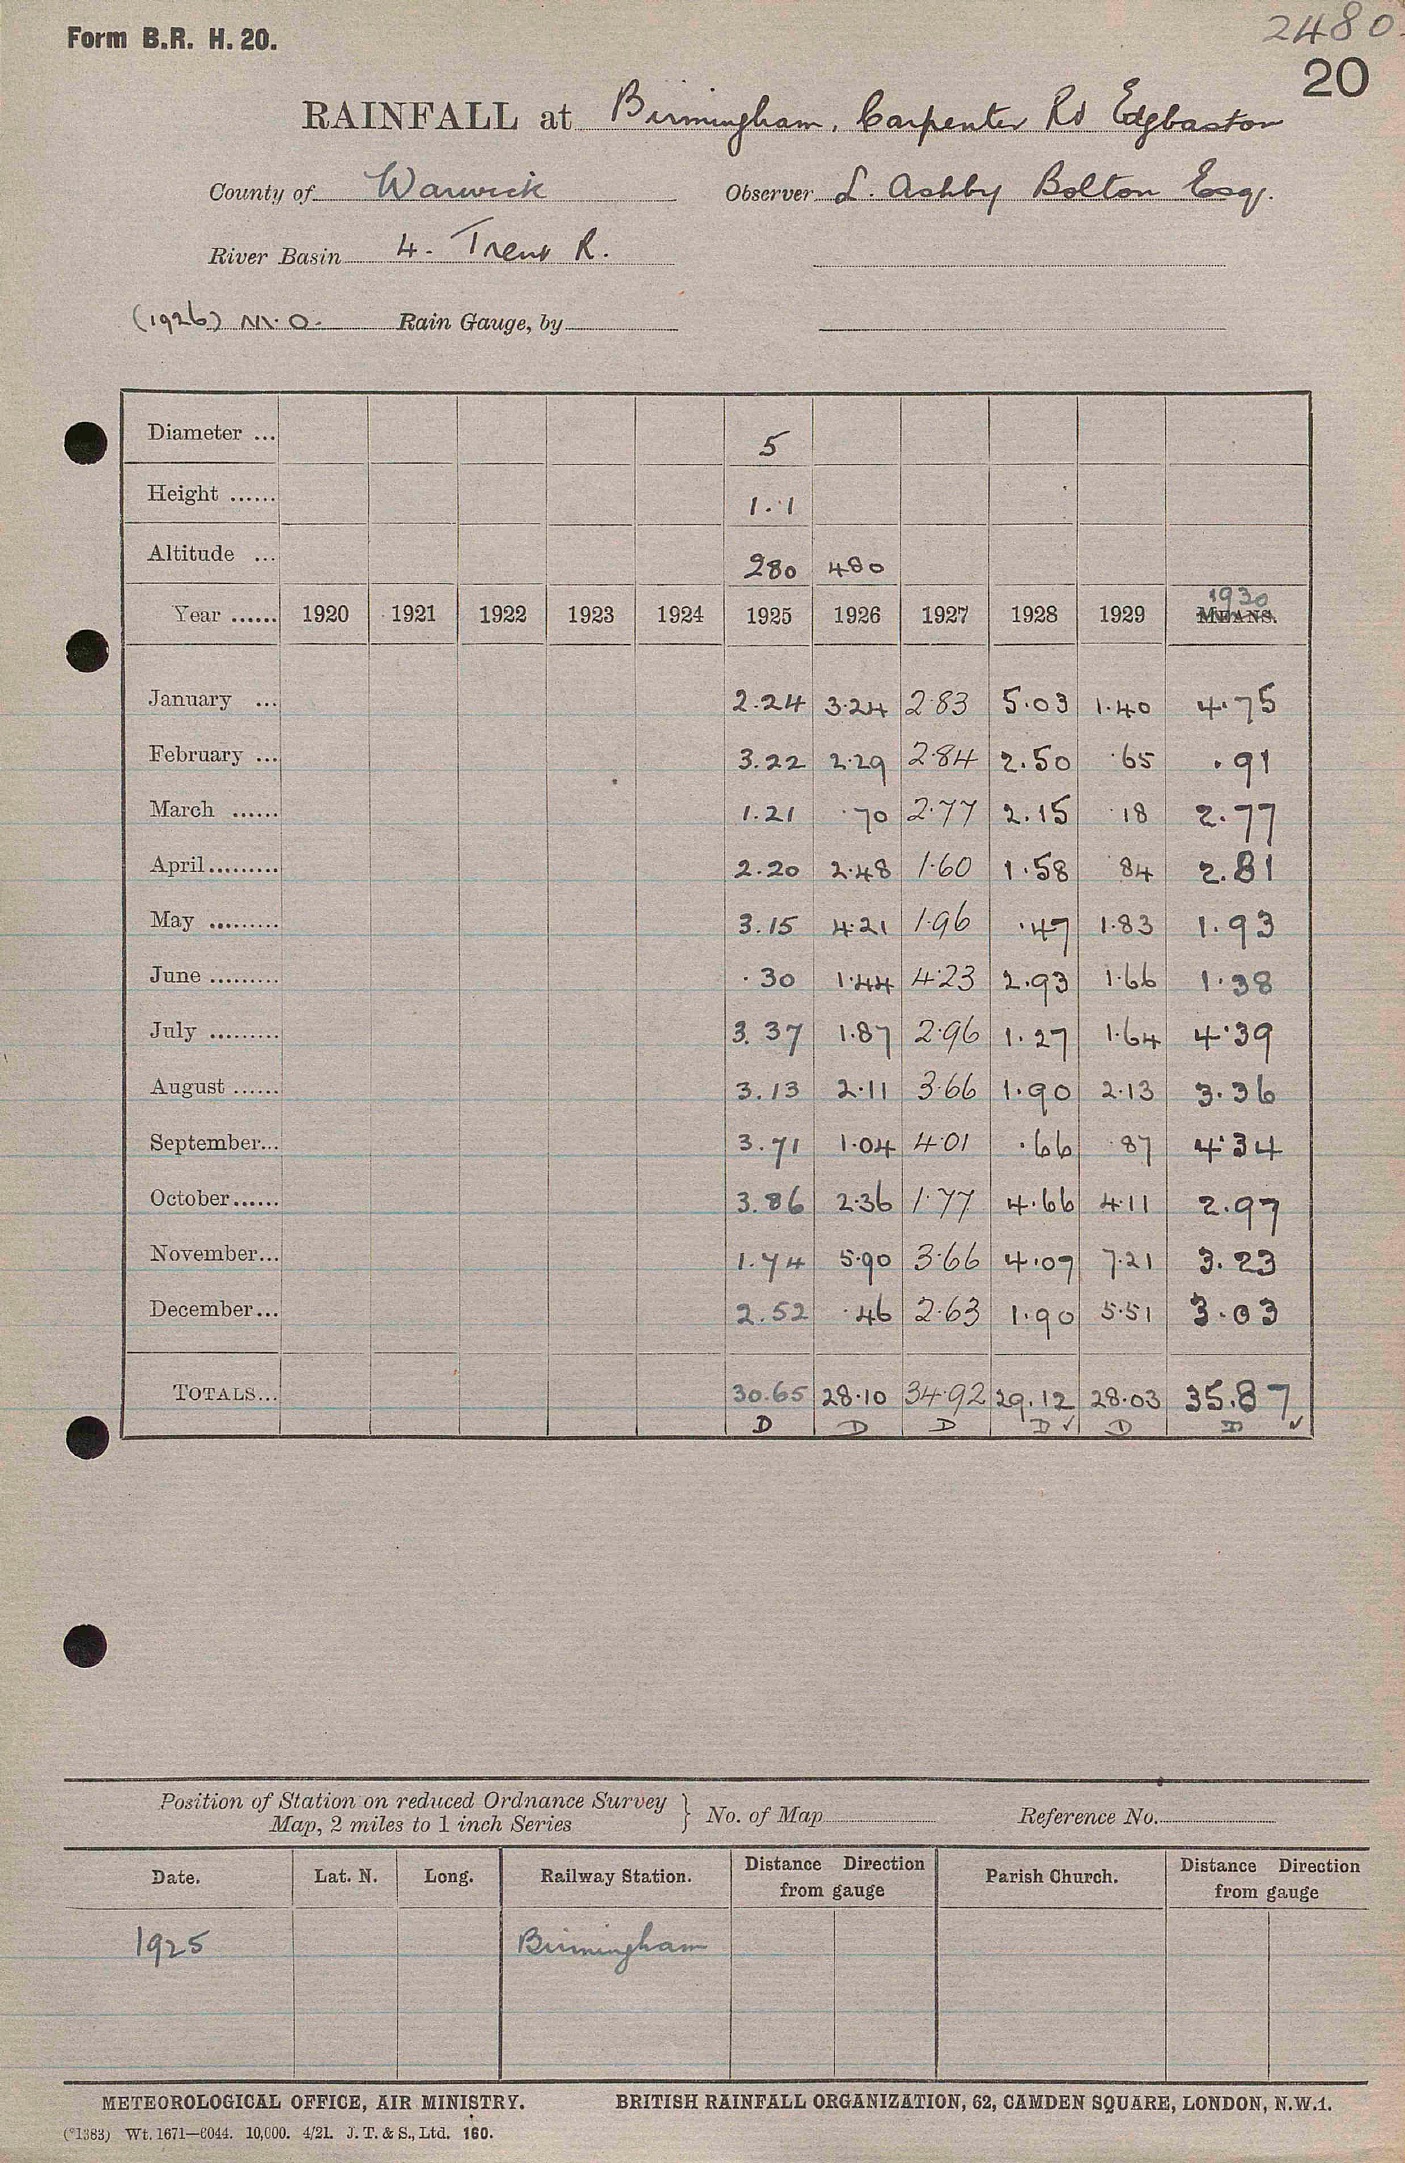 Form B.R. H. 20.
2480.
20
RAINFALL at Birmingham, Carpenter Rd Edgbaston
County of Warwick Observer L. Ashby Bolton Esq.
River Basin 4. Trent R.
(1926) M.O. Rain Gauge, by
Diameter ... 5
Height ...... 1.1
Altitude ... 280 480
Year ...... 1920 1921 1922 1923 1924 1925 1926 1927 1928 1929 1930 MEANS.
January ... 2.24 3.24 2.83 5.03 1.40 4.75
February ... 3.22 2.29 2.84 2.50 .65 .91
March ...... 1.21 .70 2.77 2.15 .18 2.77
April......... 2.20 2.48 1.60 1.58 .84 2.81
May ......... 3.15 4.21 1.96 .47 1.83 1.93
June ......... .30 1.44 4.23 2.93 1.66 1.38
July ......... 3.37 1.87 2.96 1.27 1.64 4.39
August ...... 3.13 2.11 3.66 1.90 2.13 3.36
September... 3.71 1.04 4.01 .66 .87 4.34
October...... 3.86 2.36 1.77 4.66 4.11 2.97
November... 1.74 5.90 3.66 4.07 7.21 3.23
December... 2.52 .46 2.63 1.90 5.51 3.03
TOTALS... 30.65 28.10 34.92 29.12 28.03 35.87
D D D D ✓ D D ✓
Position of Station on reduced Ordnance Survey
Map, 2 miles to 1 inch Series } No. of Map Reference No.
Date. Lat. N. Long. Railway Station. Distance Direction from gauge Parish Church. Distance Direction from gauge
1925 Birmingham
METEOROLOGICAL OFFICE, AIR MINISTRY. BRITISH RAINFALL ORGANIZATION, 62, CAMDEN SQUARE, LONDON, N.W.1.
(*1383) Wt. 1671—6044. 10,000. 4/21. J. T. & S., Ltd. 160.